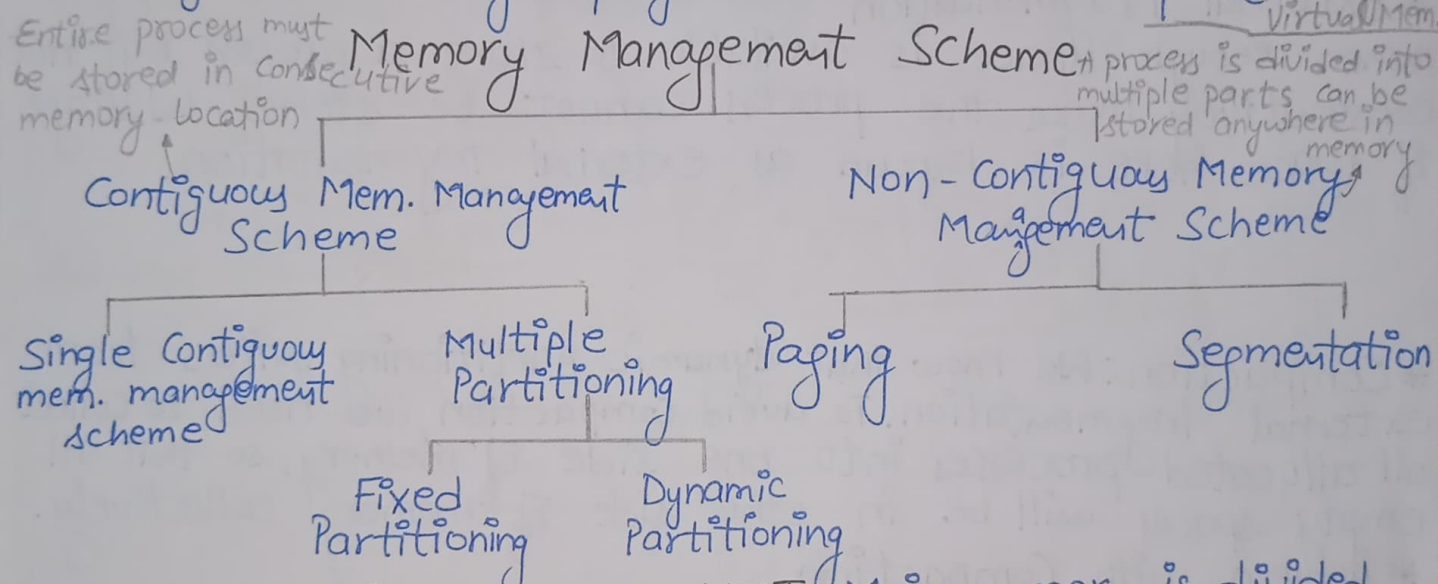 Virtual Mem.
Entire process must
be stored in consecutive
memory location
Memory Management Scheme
process is divided into
multiple parts can be
stored anywhere in
memory
Contiguous Mem. Management
Scheme
Non-Contiguous Memory
Management Scheme
Single Contiguous
mem. management
scheme
Multiple
Partitioning
Paging
Segmentation
Fixed
Partitioning
Dynamic
Partitioning
is divided